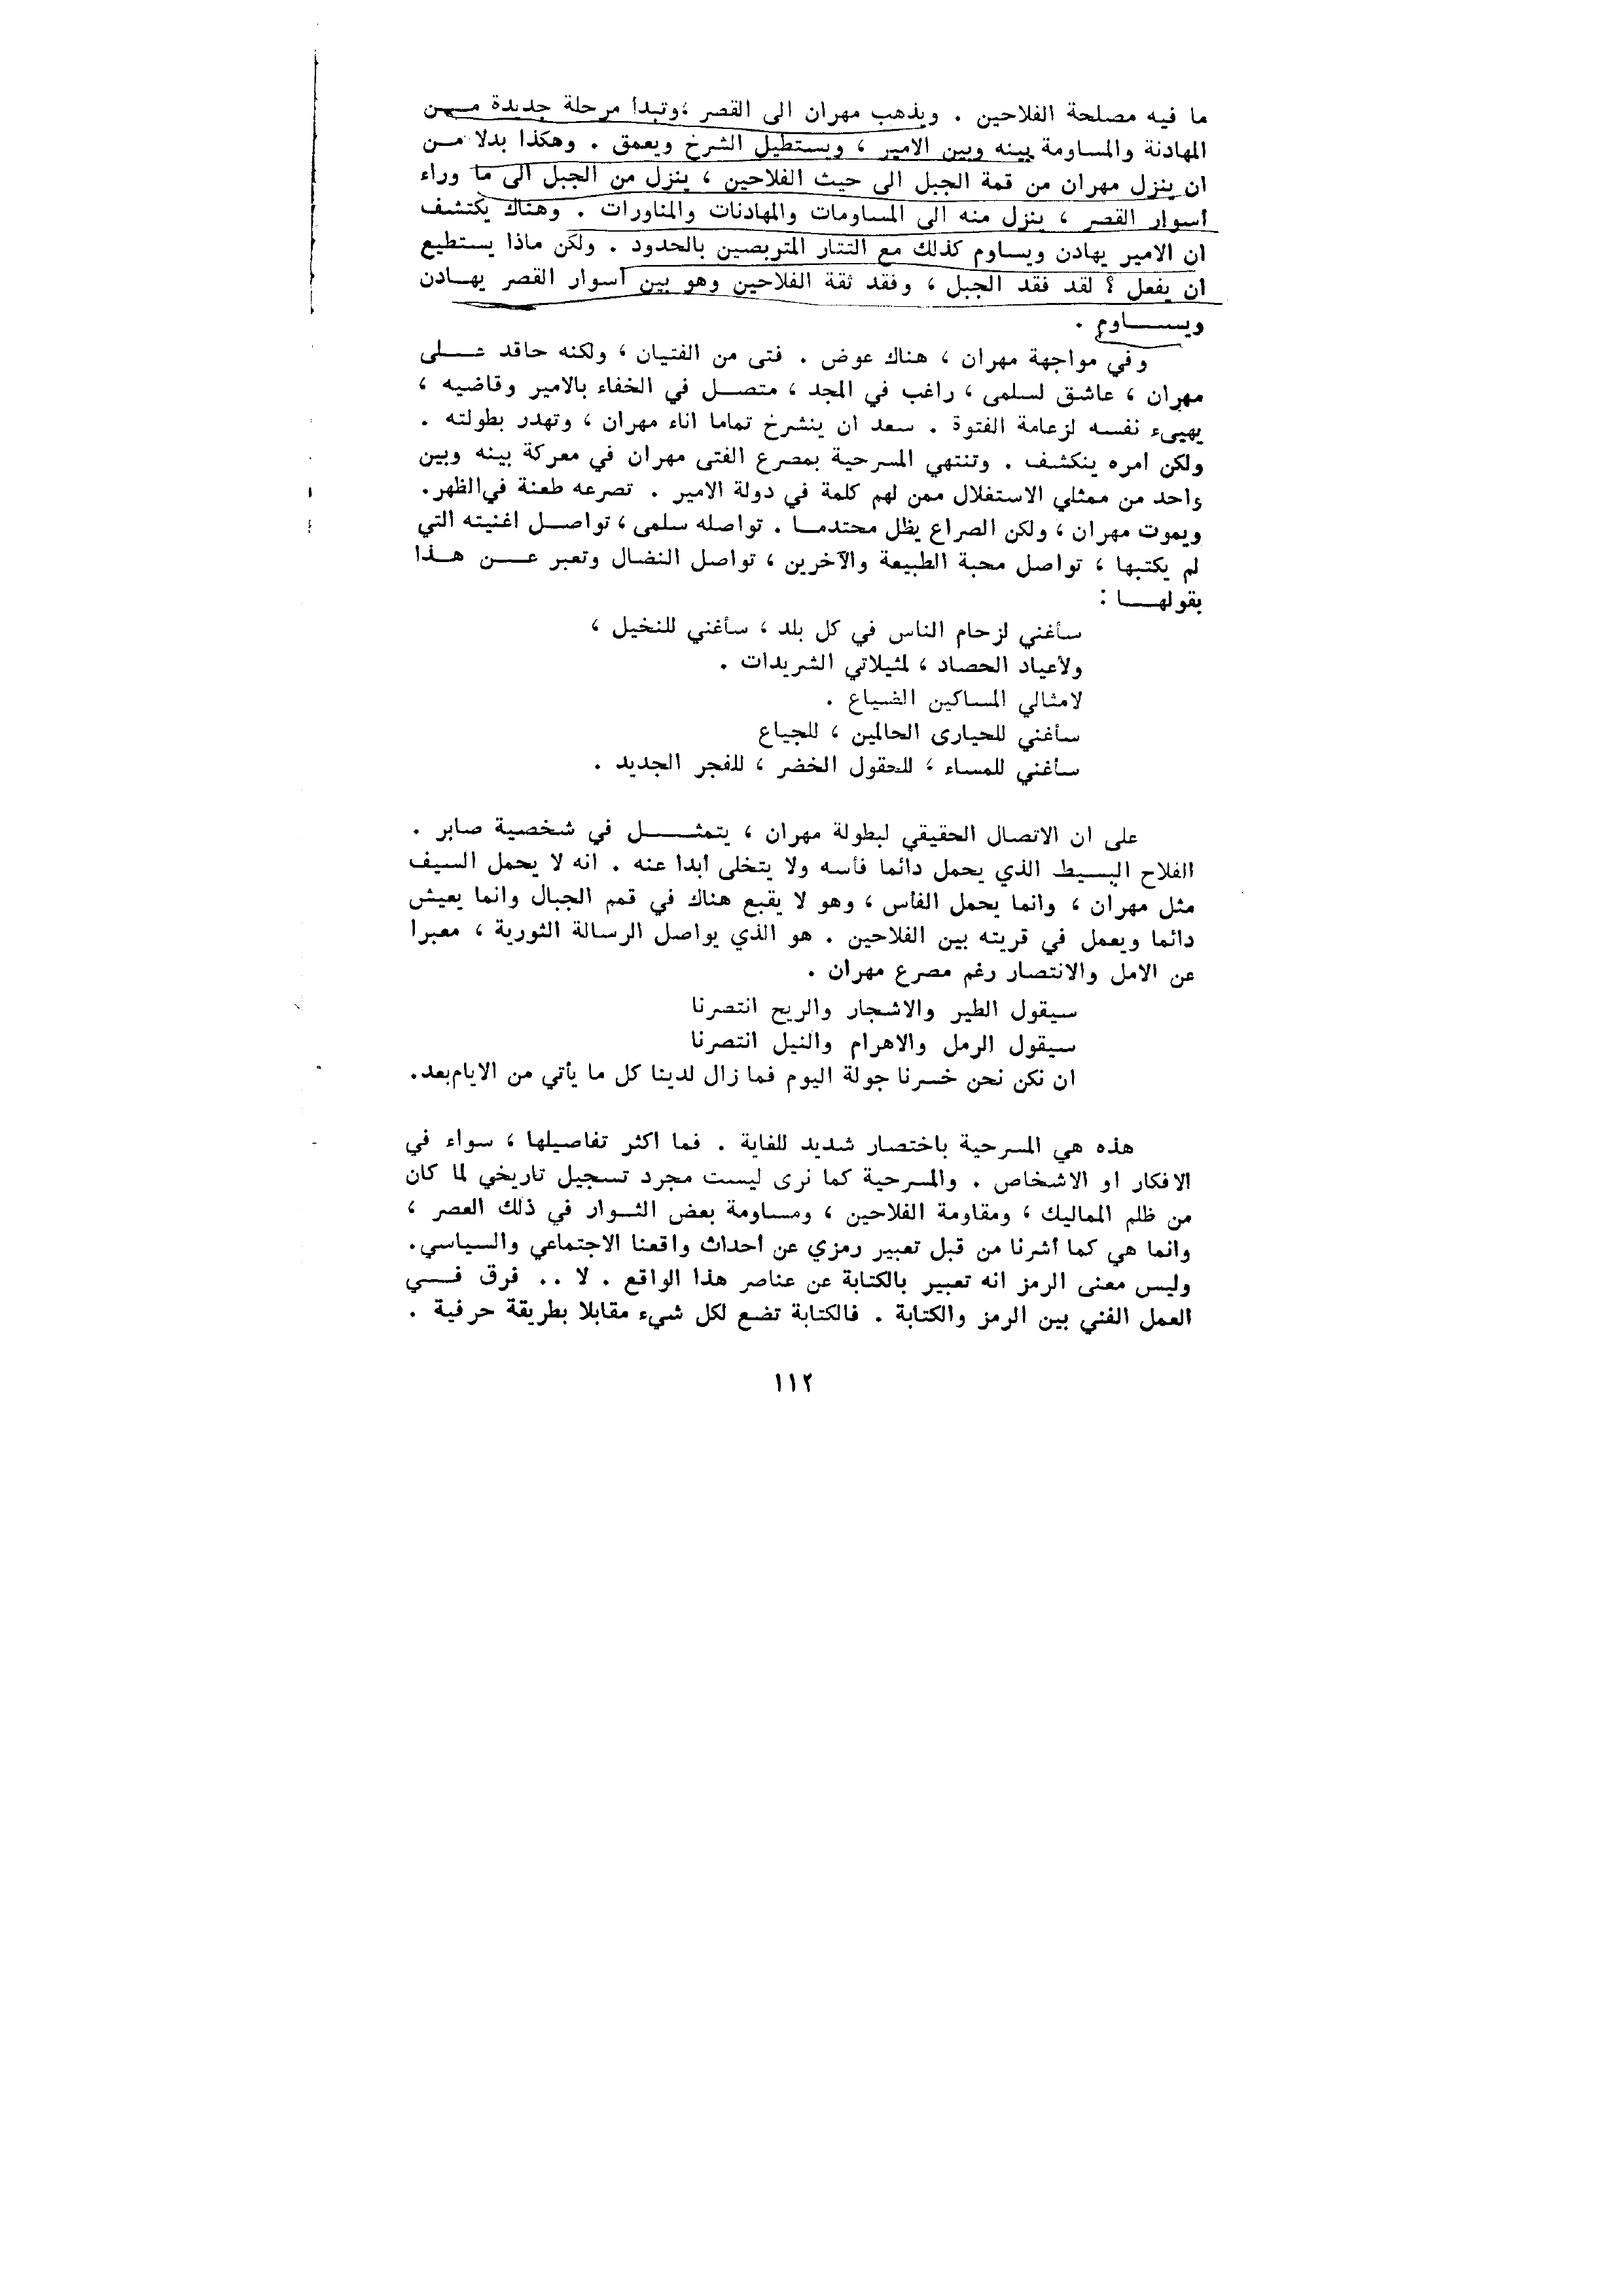 ما فيه مصلحة الفلاحين . ويذهب مهران الى القصر ، وتبدأ مرحلة جديدة مــن
المهادنة والمساومة بينه وبين الامير ، ويستطيل الشرخ ويعمق . وهكذا بدلا مــن
ان ينزل مهران من قمة الجبل الى حيث الفلاحين ، ينزل من الجبل الى ما وراء
أسوار القصر ، ينزل منه الى المساومات والمهادنات والمناورات . وهناك يكتشف
ان الامير يهادن ويساوم كذلك مع التتار المتربصين بالحدود . ولكن ماذا يستطيع
ان يفعل ؟ لقد فقد الجبل ، وفقد ثقة الفلاحين وهو بين أسوار القصر يهــادن
ويســـاوم .
وفي مواجهة مهران ، هناك عوض . فتى من الفتيان ، ولكنه حاقد عـــلى
مهران ، عاشق لسلمى ، راغب في المجد ، متصــل في الخفاء بالامير وقاضيه ،
يهييء نفسه لزعامة الفتوة . سعد ان ينشرخ تماما اناء مهران ، وتهدر بطولته .
ولكن امره ينكشف . وتنتهي المسرحية بمصرع الفتى مهران في معركة بينه وبين
واحد من ممثلي الاستغلال ممن لهم كلمة في دولة الامير . تصرعه طعنة في الظهر.
ويموت مهران ، ولكن الصراع يظل محتدمــا . تواصله سلمى ، تواصــل اغنيته التي
لم يكتبها ، تواصل محبة الطبيعة والآخرين ، تواصل النضال وتعبر عـــن هــذا
بقولهـــا :
سأغني لزحام الناس في كل بلد ، سأغني للنخيل ،
ولأعياد الحصاد ، لمثيلاتي الشريدات .
لامثالي المساكين الضياع .
سأغني للحيارى الحالمين ، للجياع
سأغني للمساء ، للحقول الخضر ، للفجر الجديد .
على ان الاتصال الحقيقي لبطولة مهران ، يتمثـــــل في شخصية صابر .
الفلاح البسيط الذي يحمل دائما فأسه ولا يتخلى أبدا عنه . انه لا يحمل السيف
مثل مهران ، وانما يحمل الفأس ، وهو لا يقبع هناك في قمم الجبال وانما يعيش
دائما ويعمل في قريته بين الفلاحين . هو الذي يواصل الرسالة الثورية ، معبرا
عن الامل والانتصار رغم مصرع مهران .
سيقول الطير والاشجار والريح انتصرنا
سيقول الرمل والاهرام والنيل انتصرنا
ان نكن نحن خسرنا جولة اليوم فما زال لدينا كل ما يأتي من الايام بعد.
هذه هي المسرحية باختصار شديد للغاية . فما اكثر تفاصيلها ، سواء في
الافكار او الاشخاص . والمسرحية كما نرى ليست مجرد تسجيل تاريخي لما كان
من ظلم المماليك ، ومقاومة الفلاحين ، ومساومة بعض الثــوار في ذلك العصر ،
وانما هي كما أشرنا من قبل تعبير رمزي عن أحداث واقعنا الاجتماعي والسياسي.
وليس معنى الرمز انه تعبير بالكتابة عن عناصر هذا الواقع . لا .. فرق فـــي
العمل الفني بين الرمز والكتابة . فالكتابة تضع لكل شيء مقابلا بطريقة حرفية .
١١٢